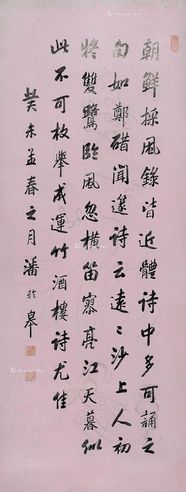 朝鮮採風錄皆近體詩中多可誦之
句如鄭碏聞邃詩云遠〻沙上人初
將雙鷺臨風忽橫笛寥亮江天暮似
此不可枚舉成運竹酒樓詩尤佳
癸未孟春之月潘於皋